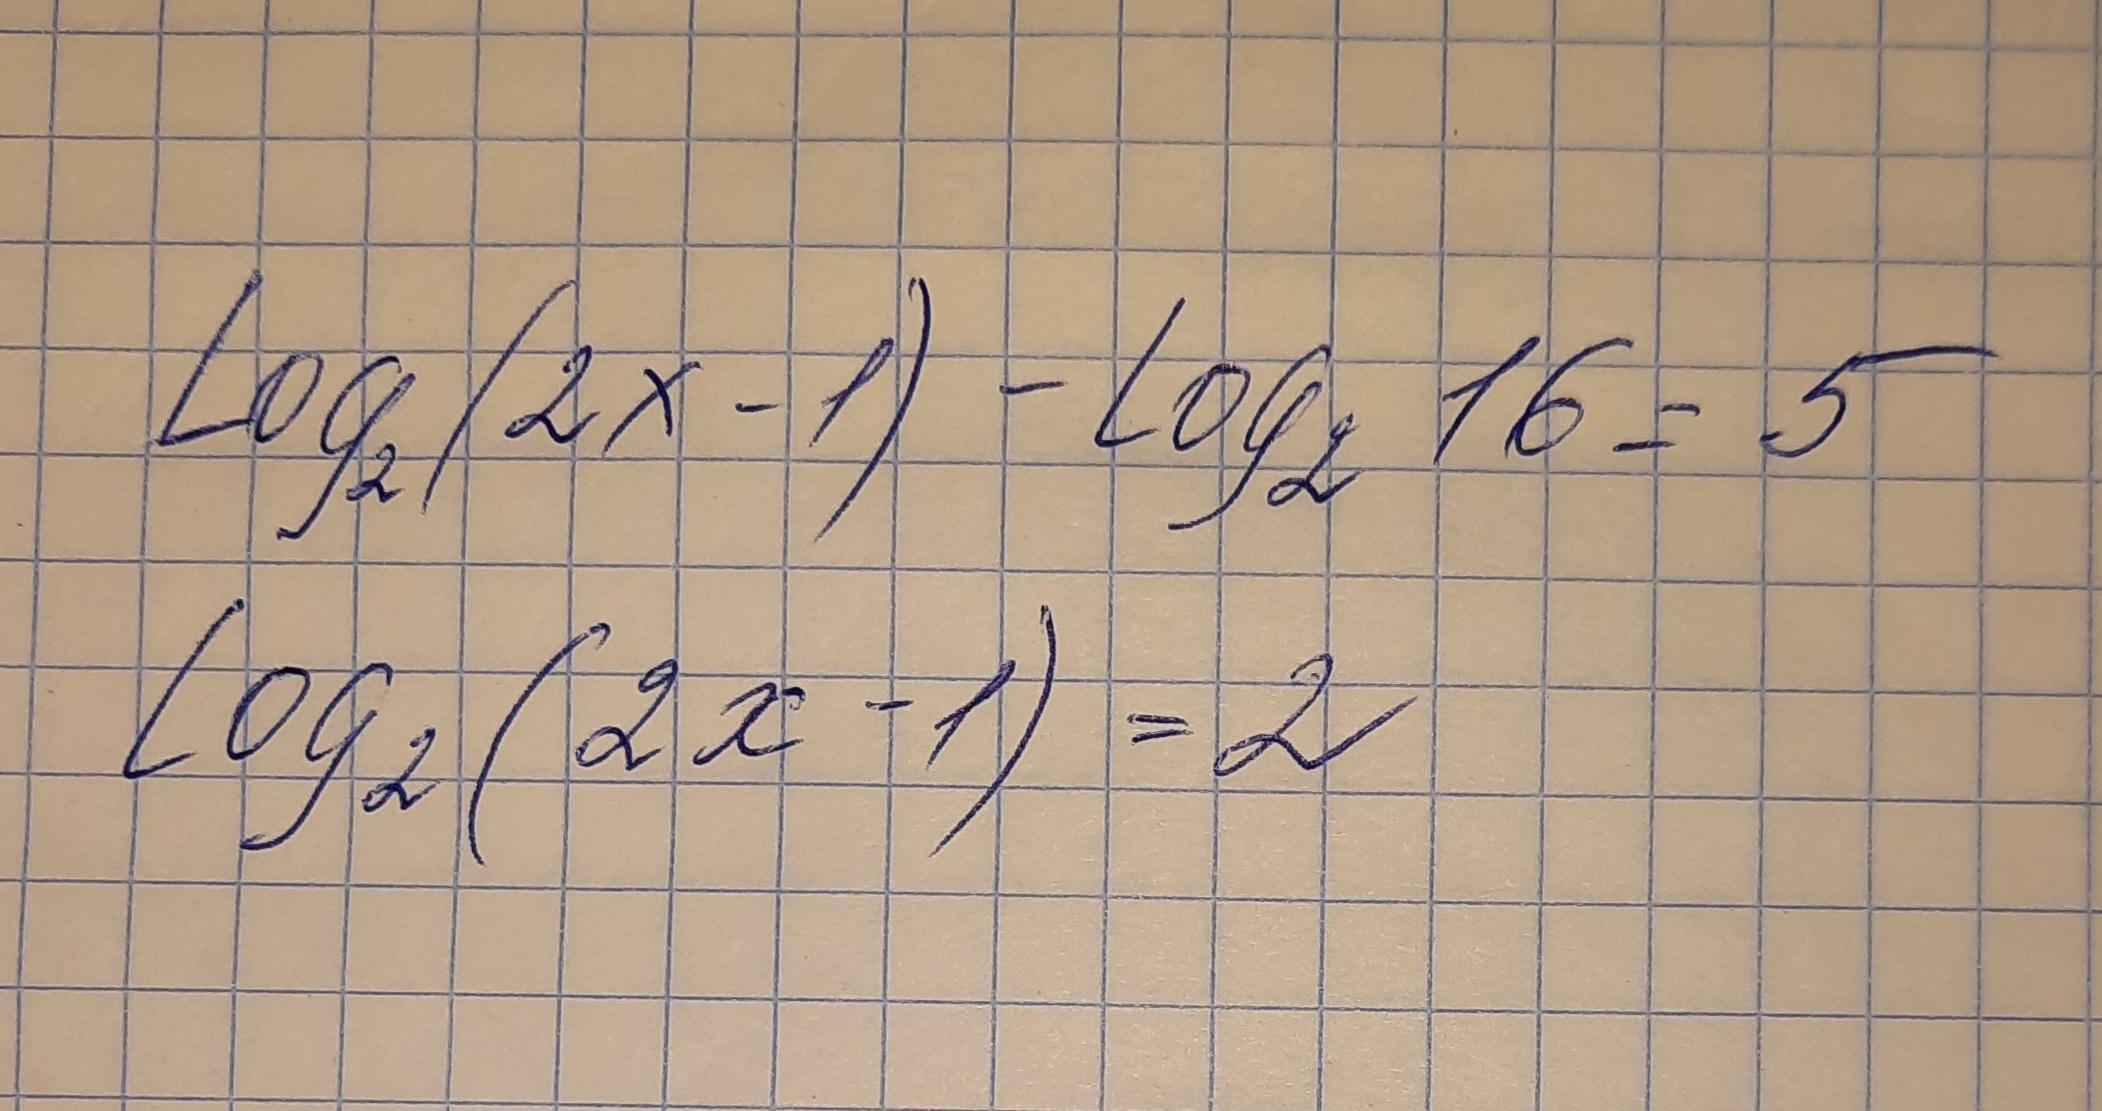 Log₂(2x-1) - Log₂ 16 = 5
Log₂(2x-1) = 2